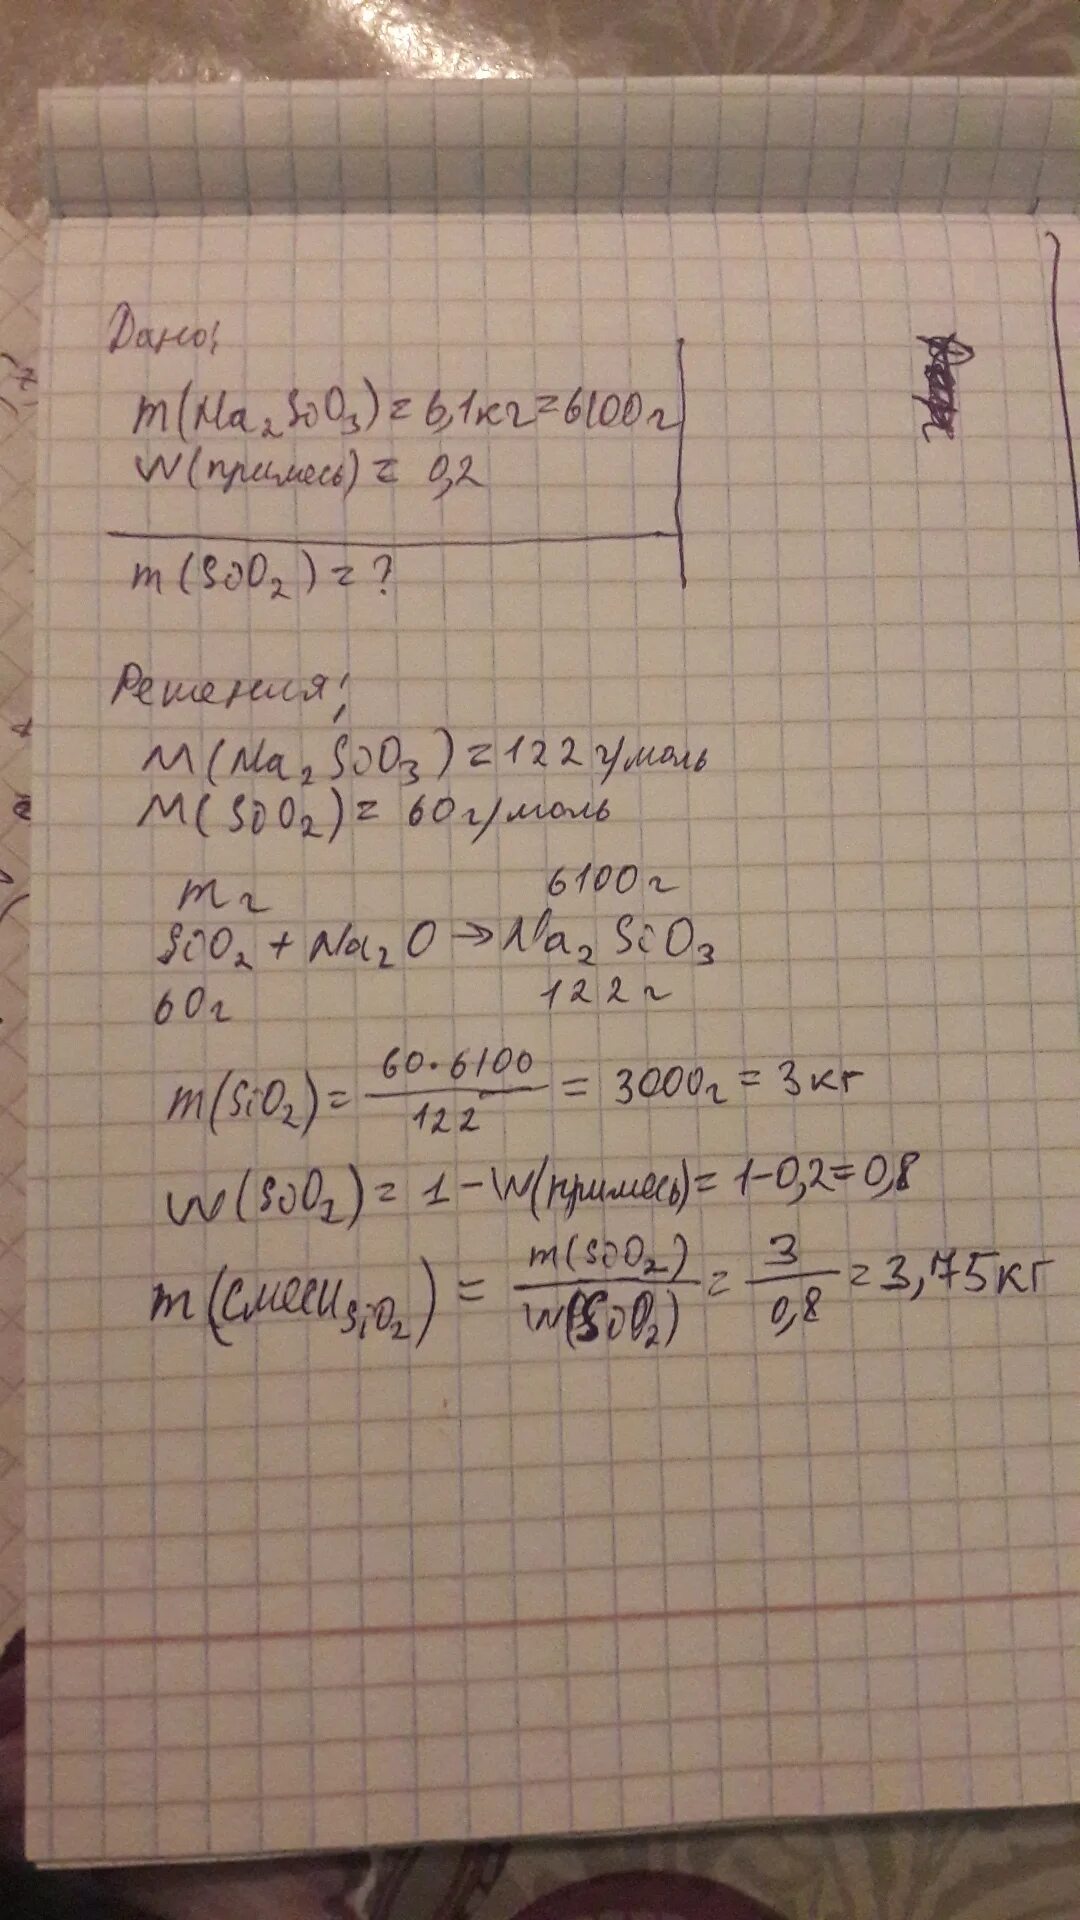 Дано:
m(Na2SiO3) = 6,1кг=6100г
W(примесь) = 0,2
m(SiO2) = ?
Решения:
M(Na2SiO3) = 122 г/моль
M(SiO2) = 60 г/моль
m г 6100 г
SiO2 + Na2O → Na2SiO3
60г 122 г
m(SiO2) = 60·6100/122 = 3000г = 3 кг
W(SiO2) = 1 - W(примесь) = 1-0,2=0,8
m(смеси SiO2) = m(SiO2)/W(SiO2) = 3/0,8 = 3,75кг